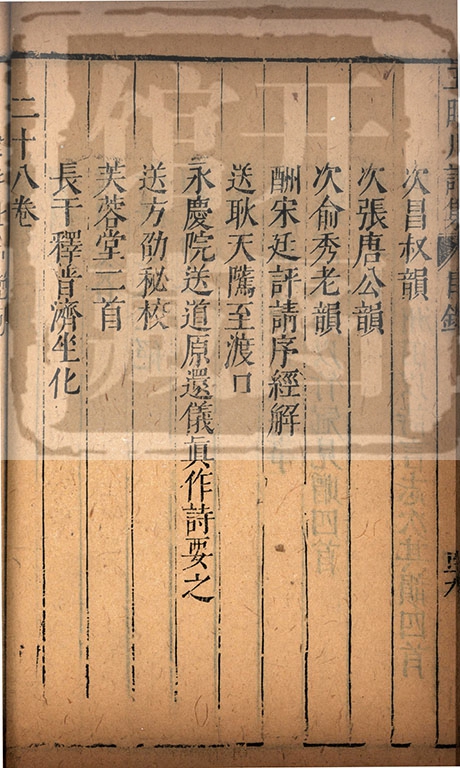 次昌叔韻
次張唐公韻
次俞秀老韻
酬宋廷評請序經解
送耿天隲至渡口
永慶院送道原還儀眞作詩要之
送方劭秘校
芙蓉堂二首
長干釋普濟坐化
二十八卷